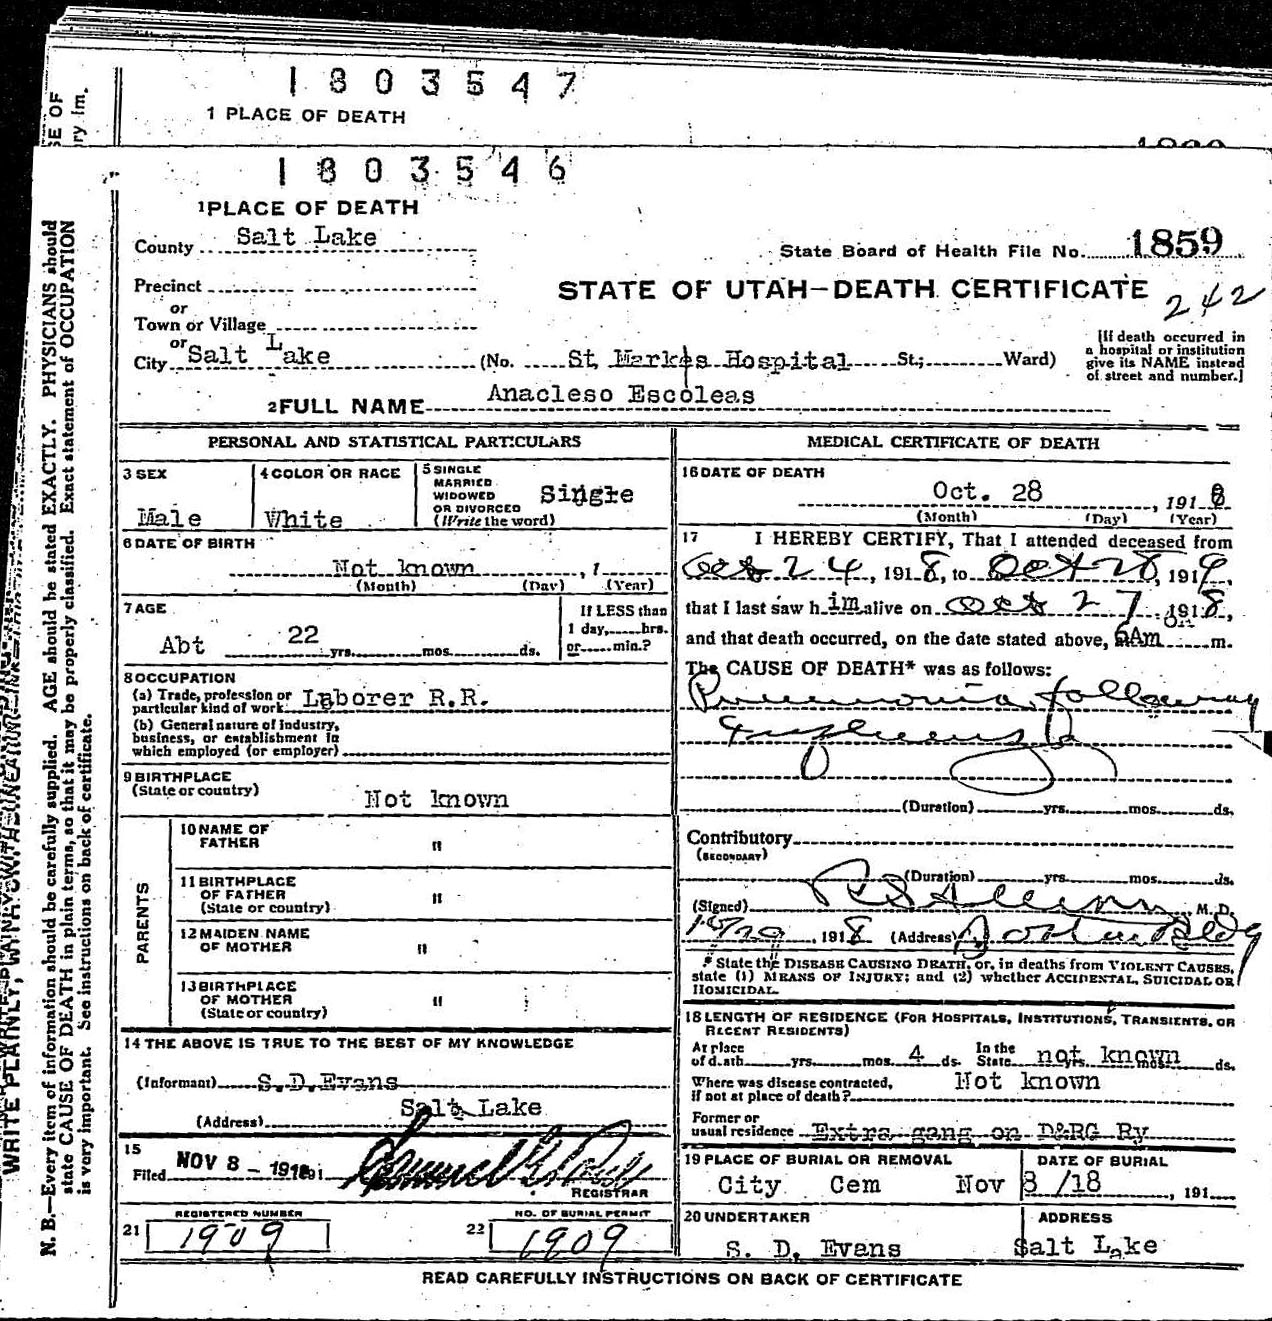 1803547
1 PLACE OF DEATH
SE OF
ry Im.
1803546
1 PLACE OF DEATH
County Salt Lake
State Board of Health File No. 1859
Precinct
or
Town or Village
or
STATE OF UTAH—DEATH CERTIFICATE
242
City Salt Lake (No. St. Marks Hospital St.; Ward)
[If death occurred in
a hospital or institution
give its NAME instead
of street and number.]
2 FULL NAME Anacleso Escoleas
PERSONAL AND STATISTICAL PARTICULARS
3 SEX
Male
4 COLOR OR RACE
White
5 SINGLE
MARRIED
WIDOWED
OR DIVORCED
(Write the word)
Single
6 DATE OF BIRTH
Not known , 1
(Month) (Day) (Year)
7 AGE
Abt 22 yrs. mos. ds.
If LESS than
1 day, hrs.
or min.?
8 OCCUPATION
(a) Trade, profession or
particular kind of work Laborer R.R.
(b) General nature of industry,
business, or establishment in
which employed (or employer)
9 BIRTHPLACE
(State or country)
Not known
PARENTS
10 NAME OF
FATHER "
11 BIRTHPLACE
OF FATHER
(State or country) "
12 MAIDEN NAME
OF MOTHER "
13 BIRTHPLACE
OF MOTHER
(State or country) "
14 THE ABOVE IS TRUE TO THE BEST OF MY KNOWLEDGE
(Informant) S.D.Evans
(Address) Salt Lake
15
Filed NOV 8 - 1918 191
REGISTRAR
REGISTERED NUMBER
21 1909
NO. OF BURIAL PERMIT
22 1909
MEDICAL CERTIFICATE OF DEATH
16 DATE OF DEATH
Oct. 28 , 1918
(Month) (Day) (Year)
17 I HEREBY CERTIFY, That I attended deceased from
Oct 24, 1918, to Oct 28, 191
that I last saw him alive on Oct 27 1918,
and that death occurred, on the date stated above, 6Am m.
The CAUSE OF DEATH* was as follows:
Pneumonia following
Influenza
(Duration) yrs. mos. ds.
Contributory
(SECONDARY)
(Duration) yrs. mos. ds.
(Signed) R S Allison M. D.
10/29, 1918 (Address) Boston Bldg
* State the DISEASE CAUSING DEATH, or, in deaths from VIOLENT CAUSES,
state (1) MEANS OF INJURY; and (2) whether ACCIDENTAL, SUICIDAL OR
HOMICIDAL.
18 LENGTH OF RESIDENCE (FOR HOSPITALS, INSTITUTIONS, TRANSIENTS, OR
RECENT RESIDENTS)
At place
of death yrs. mos. 4 ds. In the
State not known ds.
Where was disease contracted,
if not at place of death? Not known
Former or
usual residence Extra gang on D&RG Ry
19 PLACE OF BURIAL OR REMOVAL
City Cem
DATE OF BURIAL
Nov 8 /18 , 191
20 UNDERTAKER
S. D. Evans
ADDRESS
Salt Lake
READ CAREFULLY INSTRUCTIONS ON BACK OF CERTIFICATE
WRITE PLAINLY, WITH UNFADING INK
N. B.—Every item of information should be carefully supplied. AGE should be stated EXACTLY. PHYSICIANS should
state CAUSE OF DEATH in plain terms, so that it may be properly classified. Exact statement of OCCUPATION
is very important. See instructions on back of certificate.